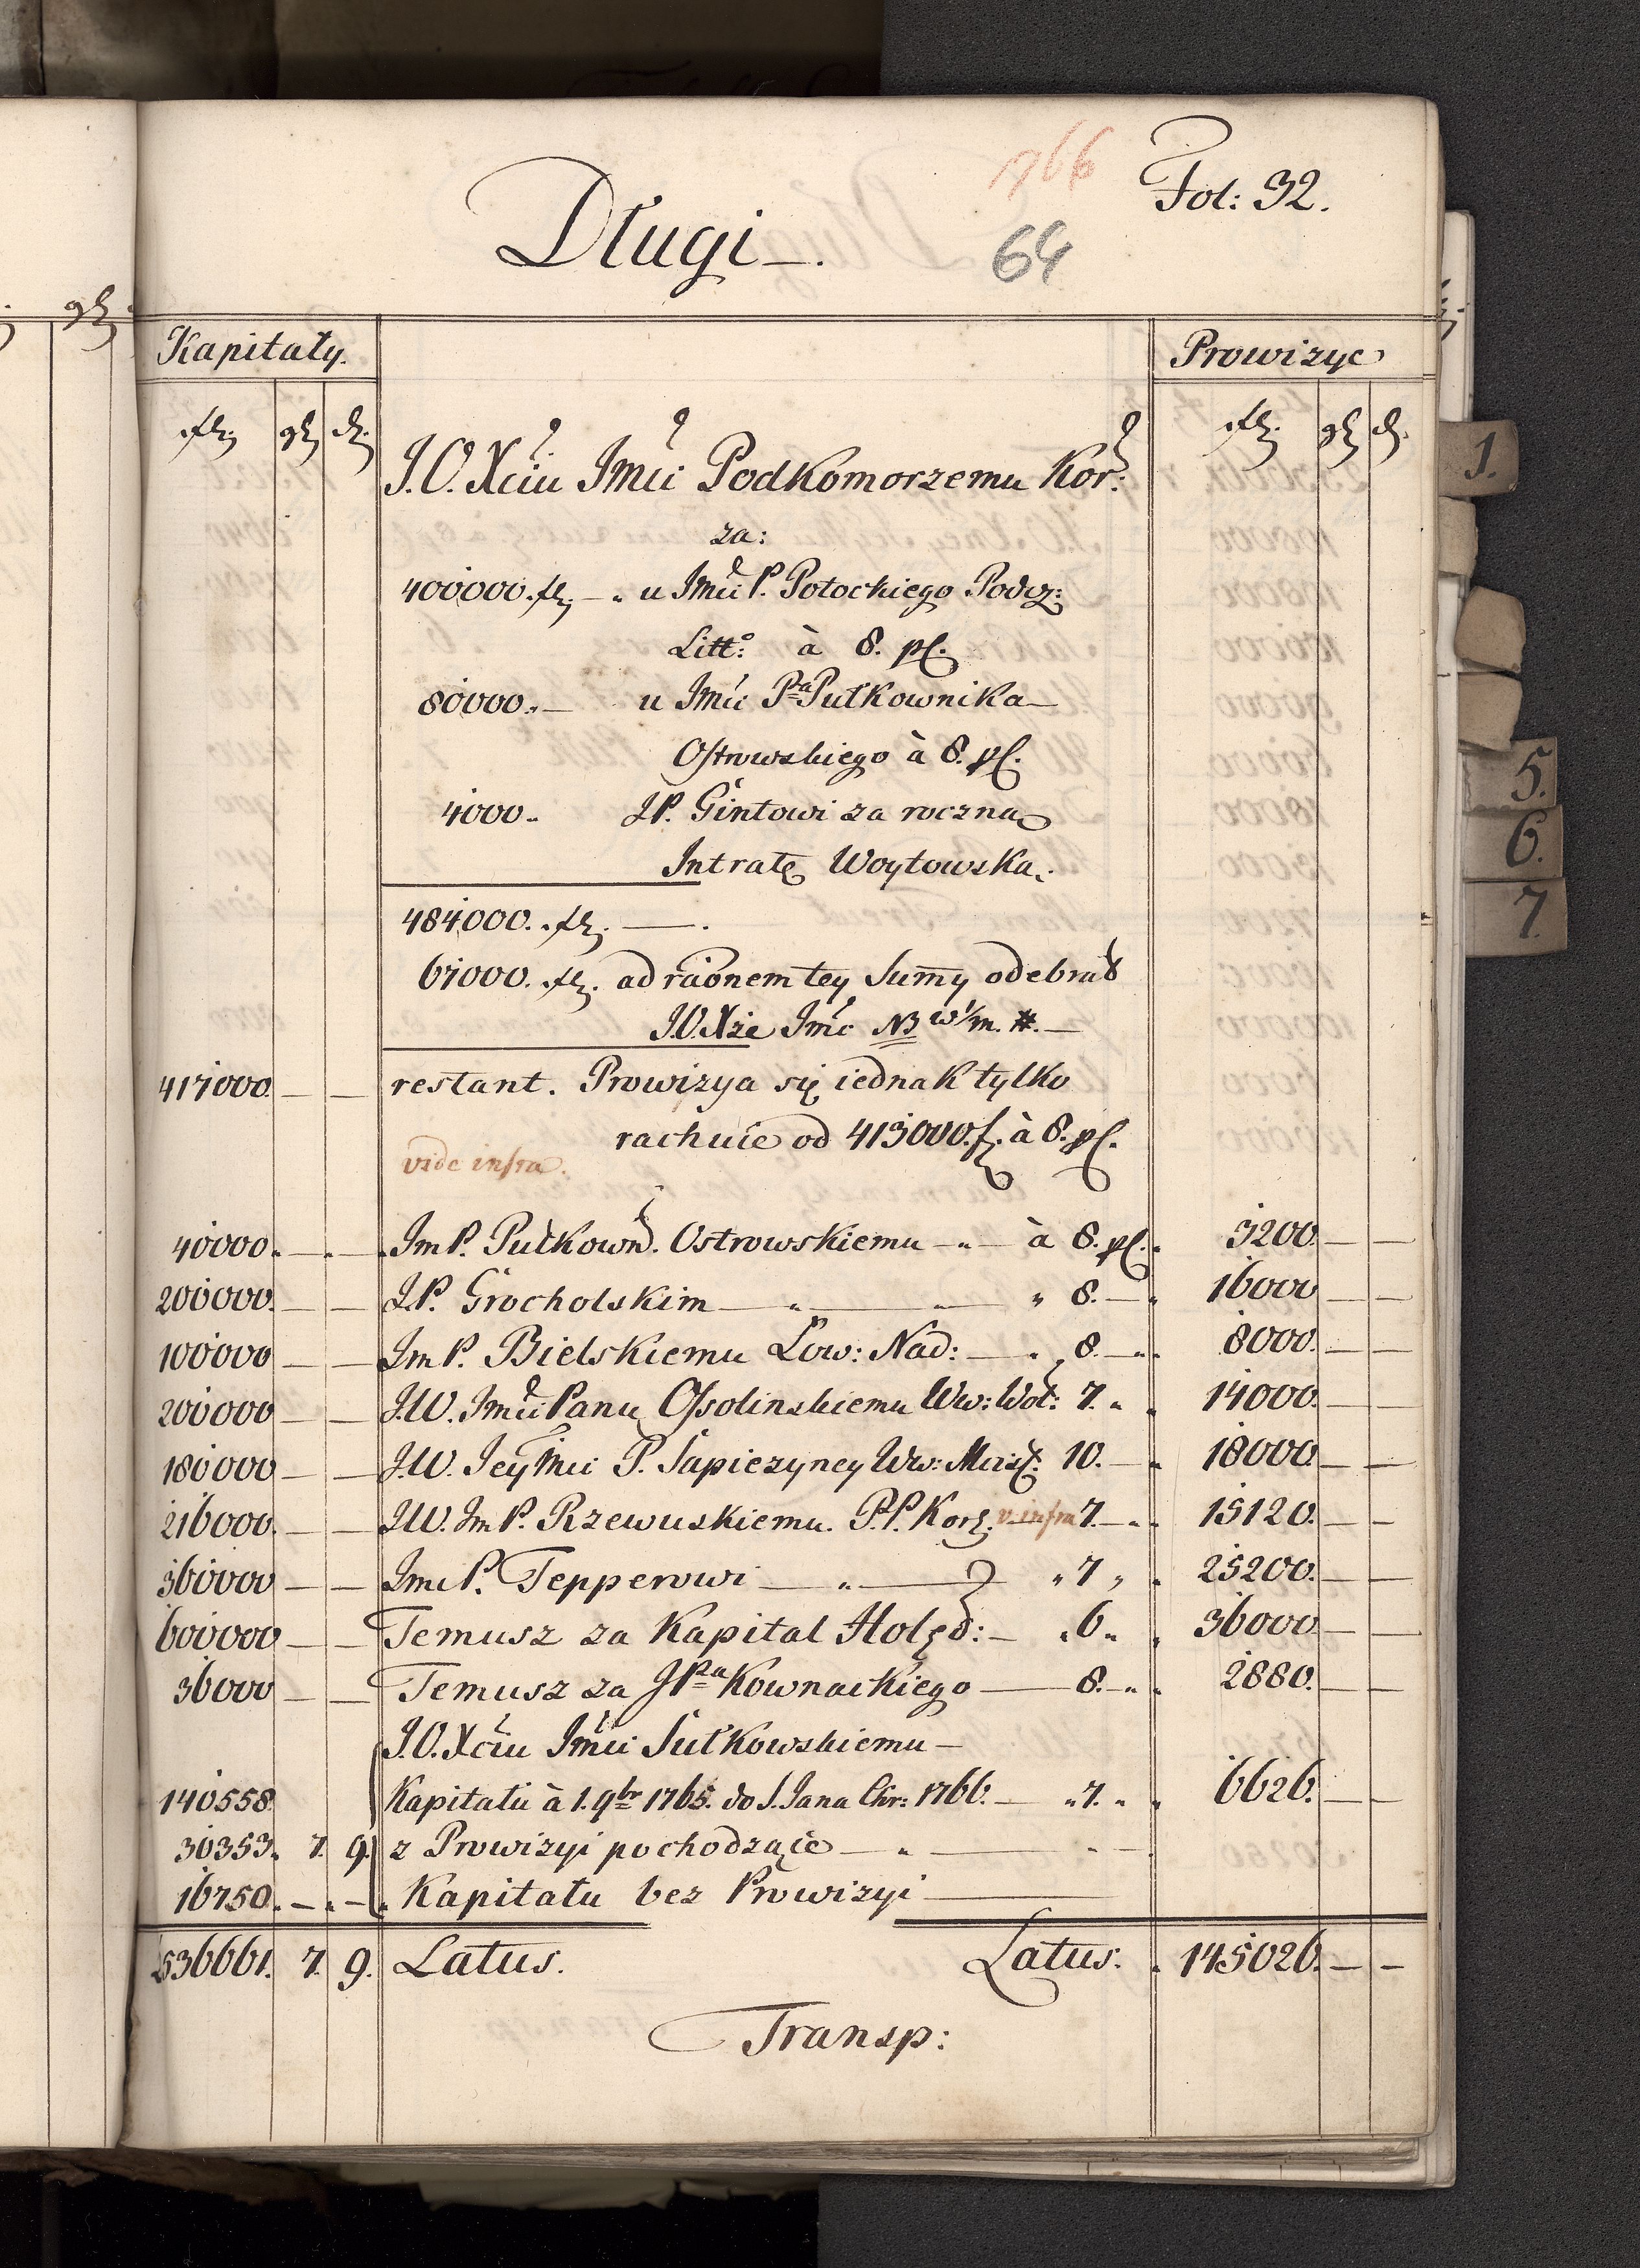 1766
Fol: 32.
Długi.
64
Kapitały.
Prowizye
fl: gr d.
fl: gr d.
J.O. Xciu Jmći Podkomorzemu Kor:
za:
400000. fl. u Jmći P. Potockiego Podcz:
Litt: à 8. pC.
80000. u Jmći Pa Pułkownika
Ostrowskiego à 8. pC.
4000. JP. Gintowi za roczną
Intratę Woytowską.
484000. fl.
67000. fl. ad raonem tey Sumy odebrał
J.O. Xże Jmć NB w/m. #.
417000. restant. Prowizya się iednak tylko
rachuie od 413000. f. à 8. pC.
vide infra.
40000. Jm P. Pułkown. Ostrowskiemu à 8. pC. 3200.
200000. J.P. Grocholskim " 8. 16000
100000 Jm P. Bielskiemu Łow: Nad: 8. 8000.
200000 J.W. Jmći Panu Ossolinskiemu Ww: Woł: 7. 14000.
180000 J.W. Jey Mci P. Sapiezyney Ww: Mśćł: 10. 18000.
216000. J.W. Jm P. Rzewuskiemu. P.P. Kor. v. infra 7. 15120.
360000 Jmć P. Tepperowi " 7 25200.
600000 Temusz za Kapital Holęd: 6. 36000
36000 Temusz za JPa Kownackiego 8. 2880.
J.O. Xciu Jmći Sułkowskiemu
140558. Kapitału à 1. 9br 1765. do S. Jana Chr: 1766. 7. 6626.
30353. 7. 9. z Prowizyi pochodzące
16750. Kapitału bez Prowizyi
2536661. 7. 9. Latus. Latus. 145026.
Transp:
1.
5.
6.
7.